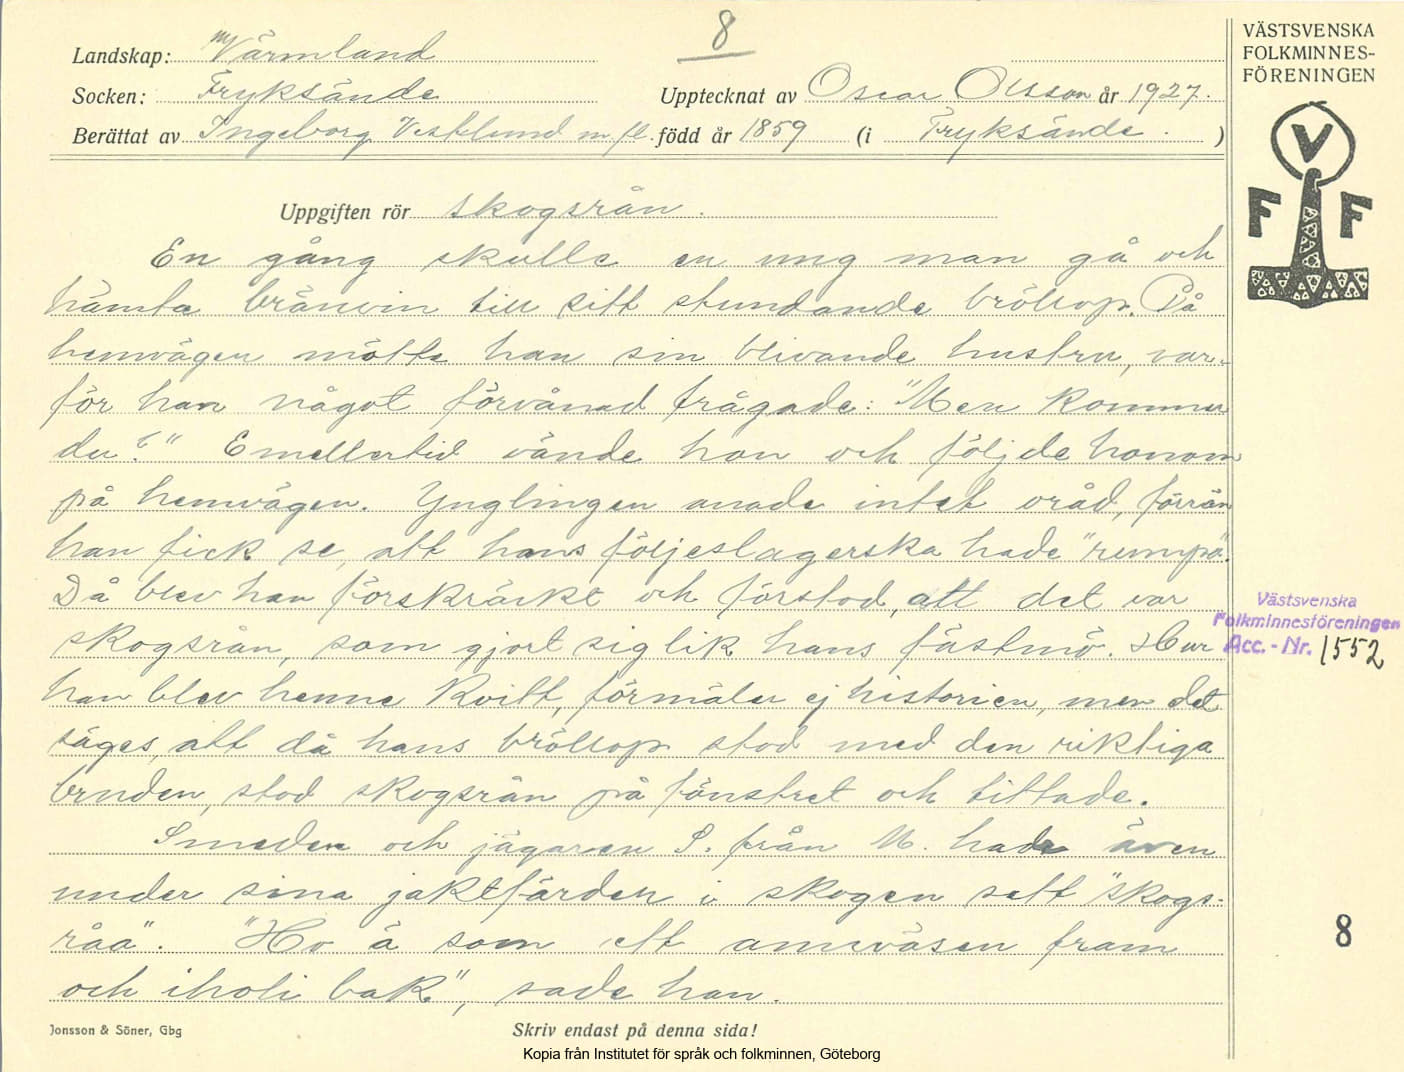 8
Landskap: Värmland
Socken: Fryksände
Upptecknat av Oscar Olsson år 1927.
Berättat av Ingeborg Vestlund m. fl. född år 1859 (i Fryksände. )
Uppgiften rör skogsrån.
En gång skulle en ung man gå och
hämta brännvin till sitt stundande bröllop. På
hemvägen mötte han sin blivande hustru, var-
för han något förvånad frågade: "Men kommer
du?" Emellertid vände hon och följde honom
på hemvägen. Ynglingen anade intet oråd, förrän
han fick se, att hans följeslagerska hade "rumpa".
Då blev han förskräckt och förstod, att det var
skogsrån, som gjort sig lik hans fästmö. Hur
han blev henne kvitt, förmäler ej historien, men det
säges, att då hans bröllop stod med den riktiga
bruden, stod skogsrån på fönstret och tittade.
Smeden och jägaren S. från N. hade även
under sina jaktfärder i skogen sett "skogs-
råa". "Ho ä som ett anneväsen fram
och iholi bak", sade han.
Jonsson & Söner, Gbg
Skriv endast på denna sida!
Kopia från Institutet för språk och folkminnen, Göteborg
VÄSTSVENSKA
FOLKMINNES-
FÖRENINGEN
V
F F
Västsvenska
Folkminnesföreningen
Acc. - Nr. 1552
8